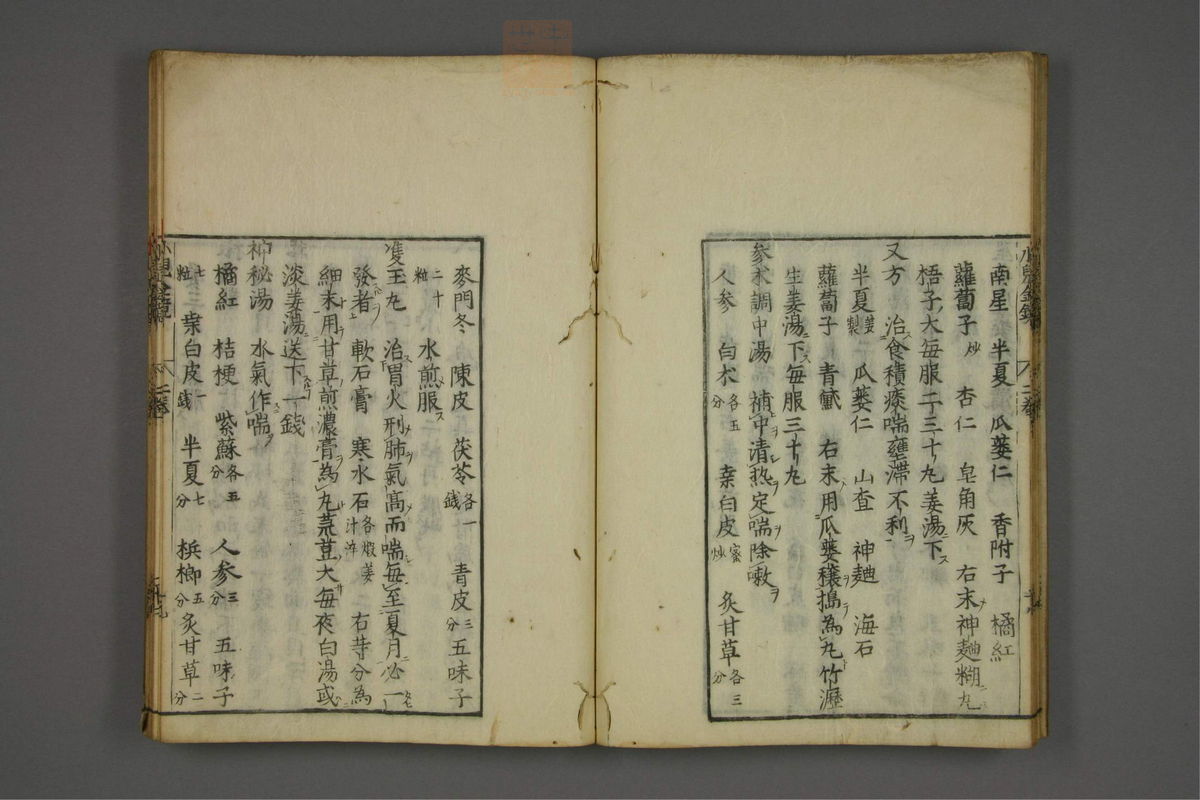 南星 半夏 瓜蔞仁 香附子 橘紅
蘿蔔子炒 杏仁 皂角灰 右末神麯糊丸
梧子大毎服二三十丸姜湯下ス
又方 治食積痰喘壅滯不利ヲ
半夏姜製 瓜蔞仁 山査 神麯 海石
蘿蔔子 青黛 右末用瓜蔞穰搗為丸竹瀝
生姜湯下ス毎服三十丸
參朮調中湯 補中ヲ清熱ヲ定喘ヲ除嗽ヲ
人參 白朮各五分 桒白皮蜜炒 炙甘草各三分
麥門冬 陳皮 茯苓各一錢 青皮三分 五味子
二十粒 水煎服ス
隻玉丸 治胃火刑肺氣髙而喘毎至夏月必
發者 軟石膏 寒水石各煅姜汁淬 右等分為
細末用甘草煎濃膏為丸芡荳大毎夜白湯或
淡姜湯送下一錢
神秘湯 水氣作喘
橘紅 桔梗 紫蘇各五分 人參三分 五味子
七粒 桒白皮一錢 半夏七分 梹榔五分 炙甘草二分